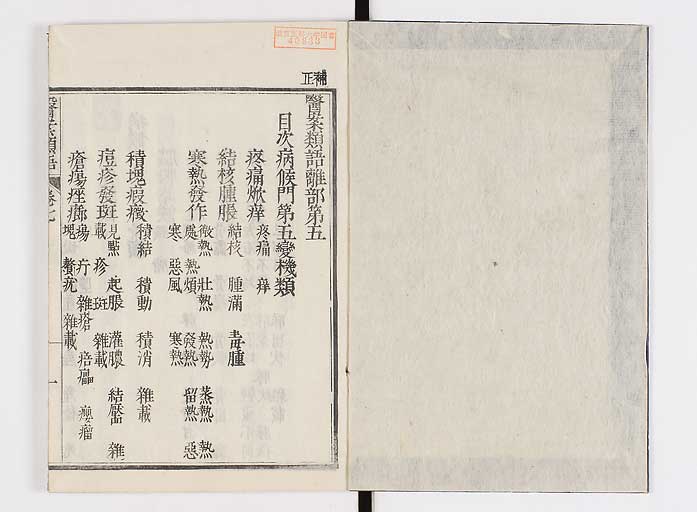 補正
醫案類語離部第五
目次病候門第五變機類
疼痛焮痒 疼痛 痒
結核腫脹 結核 腫滿 毒腫
寒熱發作 微熱 壯熱 熱勢 蒸熱 熱
處熱煩 發熱 留熱 惡
寒 惡風 寒熱
積塊瘕癥 積結 積動 積消 雜載
痘疹發斑 見點 起脹 灌膿 結靨 雜
載 疹 斑 雜載
瘡瘍痤癤 瘍 疔 雜瘡 癧 癭瘤
塊 贅疣 雜載
醫案類語 卷七 一
40935